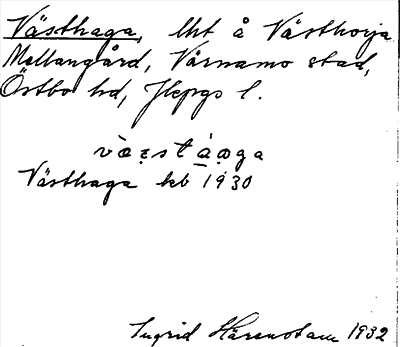 Västhaga, lht å Västhorja
Mellangård, Värnamo stad,
Östbo hd, Jkpgs l.
Västhaga kb 1930
Ingrid Härenstam 1932